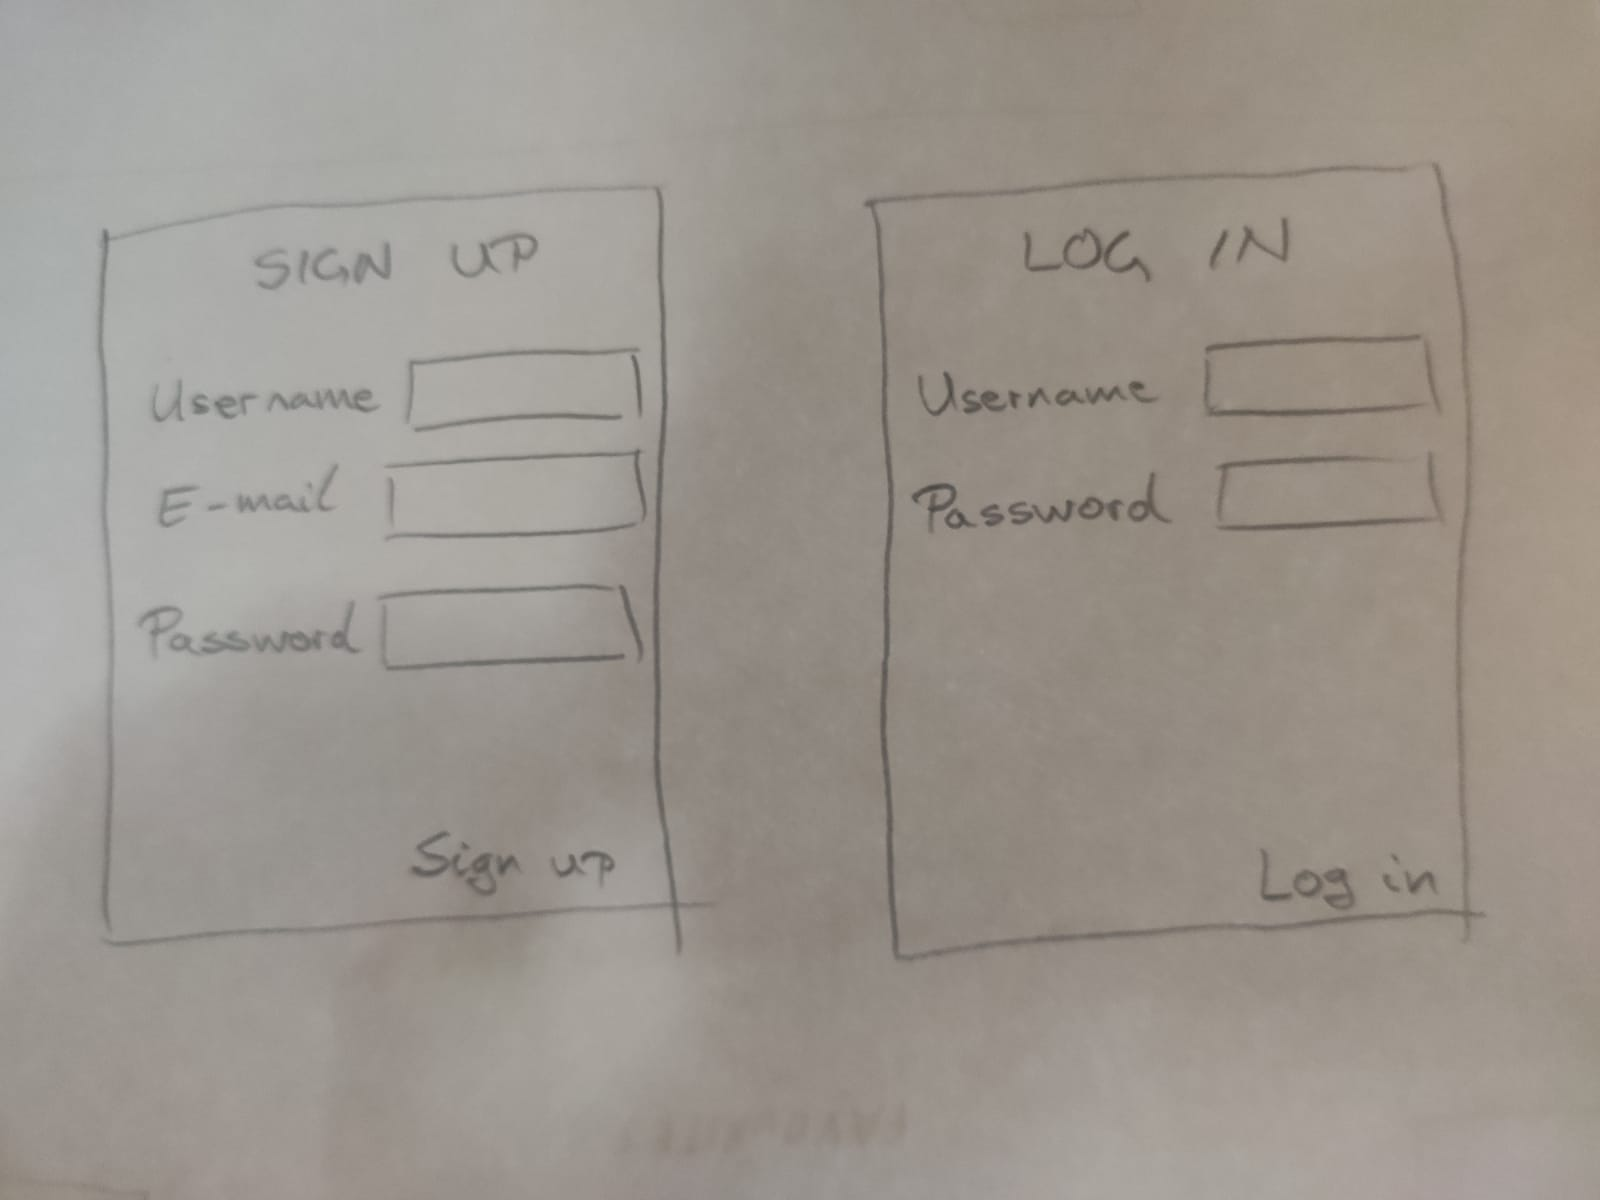 SIGN UP
Username
E-mail
Password
Sign up
LOG IN
Username
Password
Log in